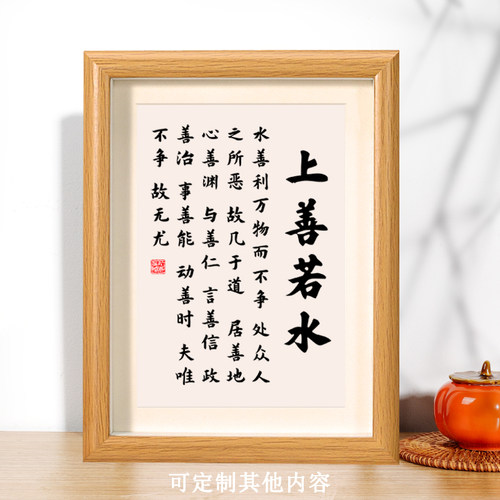 上善若水
水善利万物而不争 处众人
之所恶 故几于道 居善地
心善渊 与善仁 言善信 政
善治 事善能 动善时 夫唯
不争 故无尤
可定制其他内容